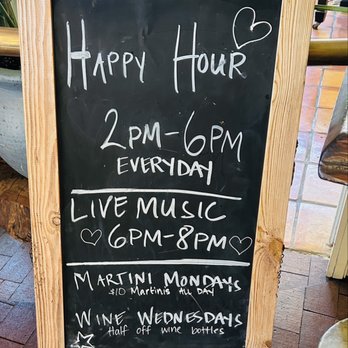 HAPPY HOUR
2PM-6PM
EVERYDAY
LIVE MUSIC
6PM-8PM
MARTINI MONDAYS
$10 Martinis ALL DAY
WINE WEDNESDAYS
Half off wine bottles